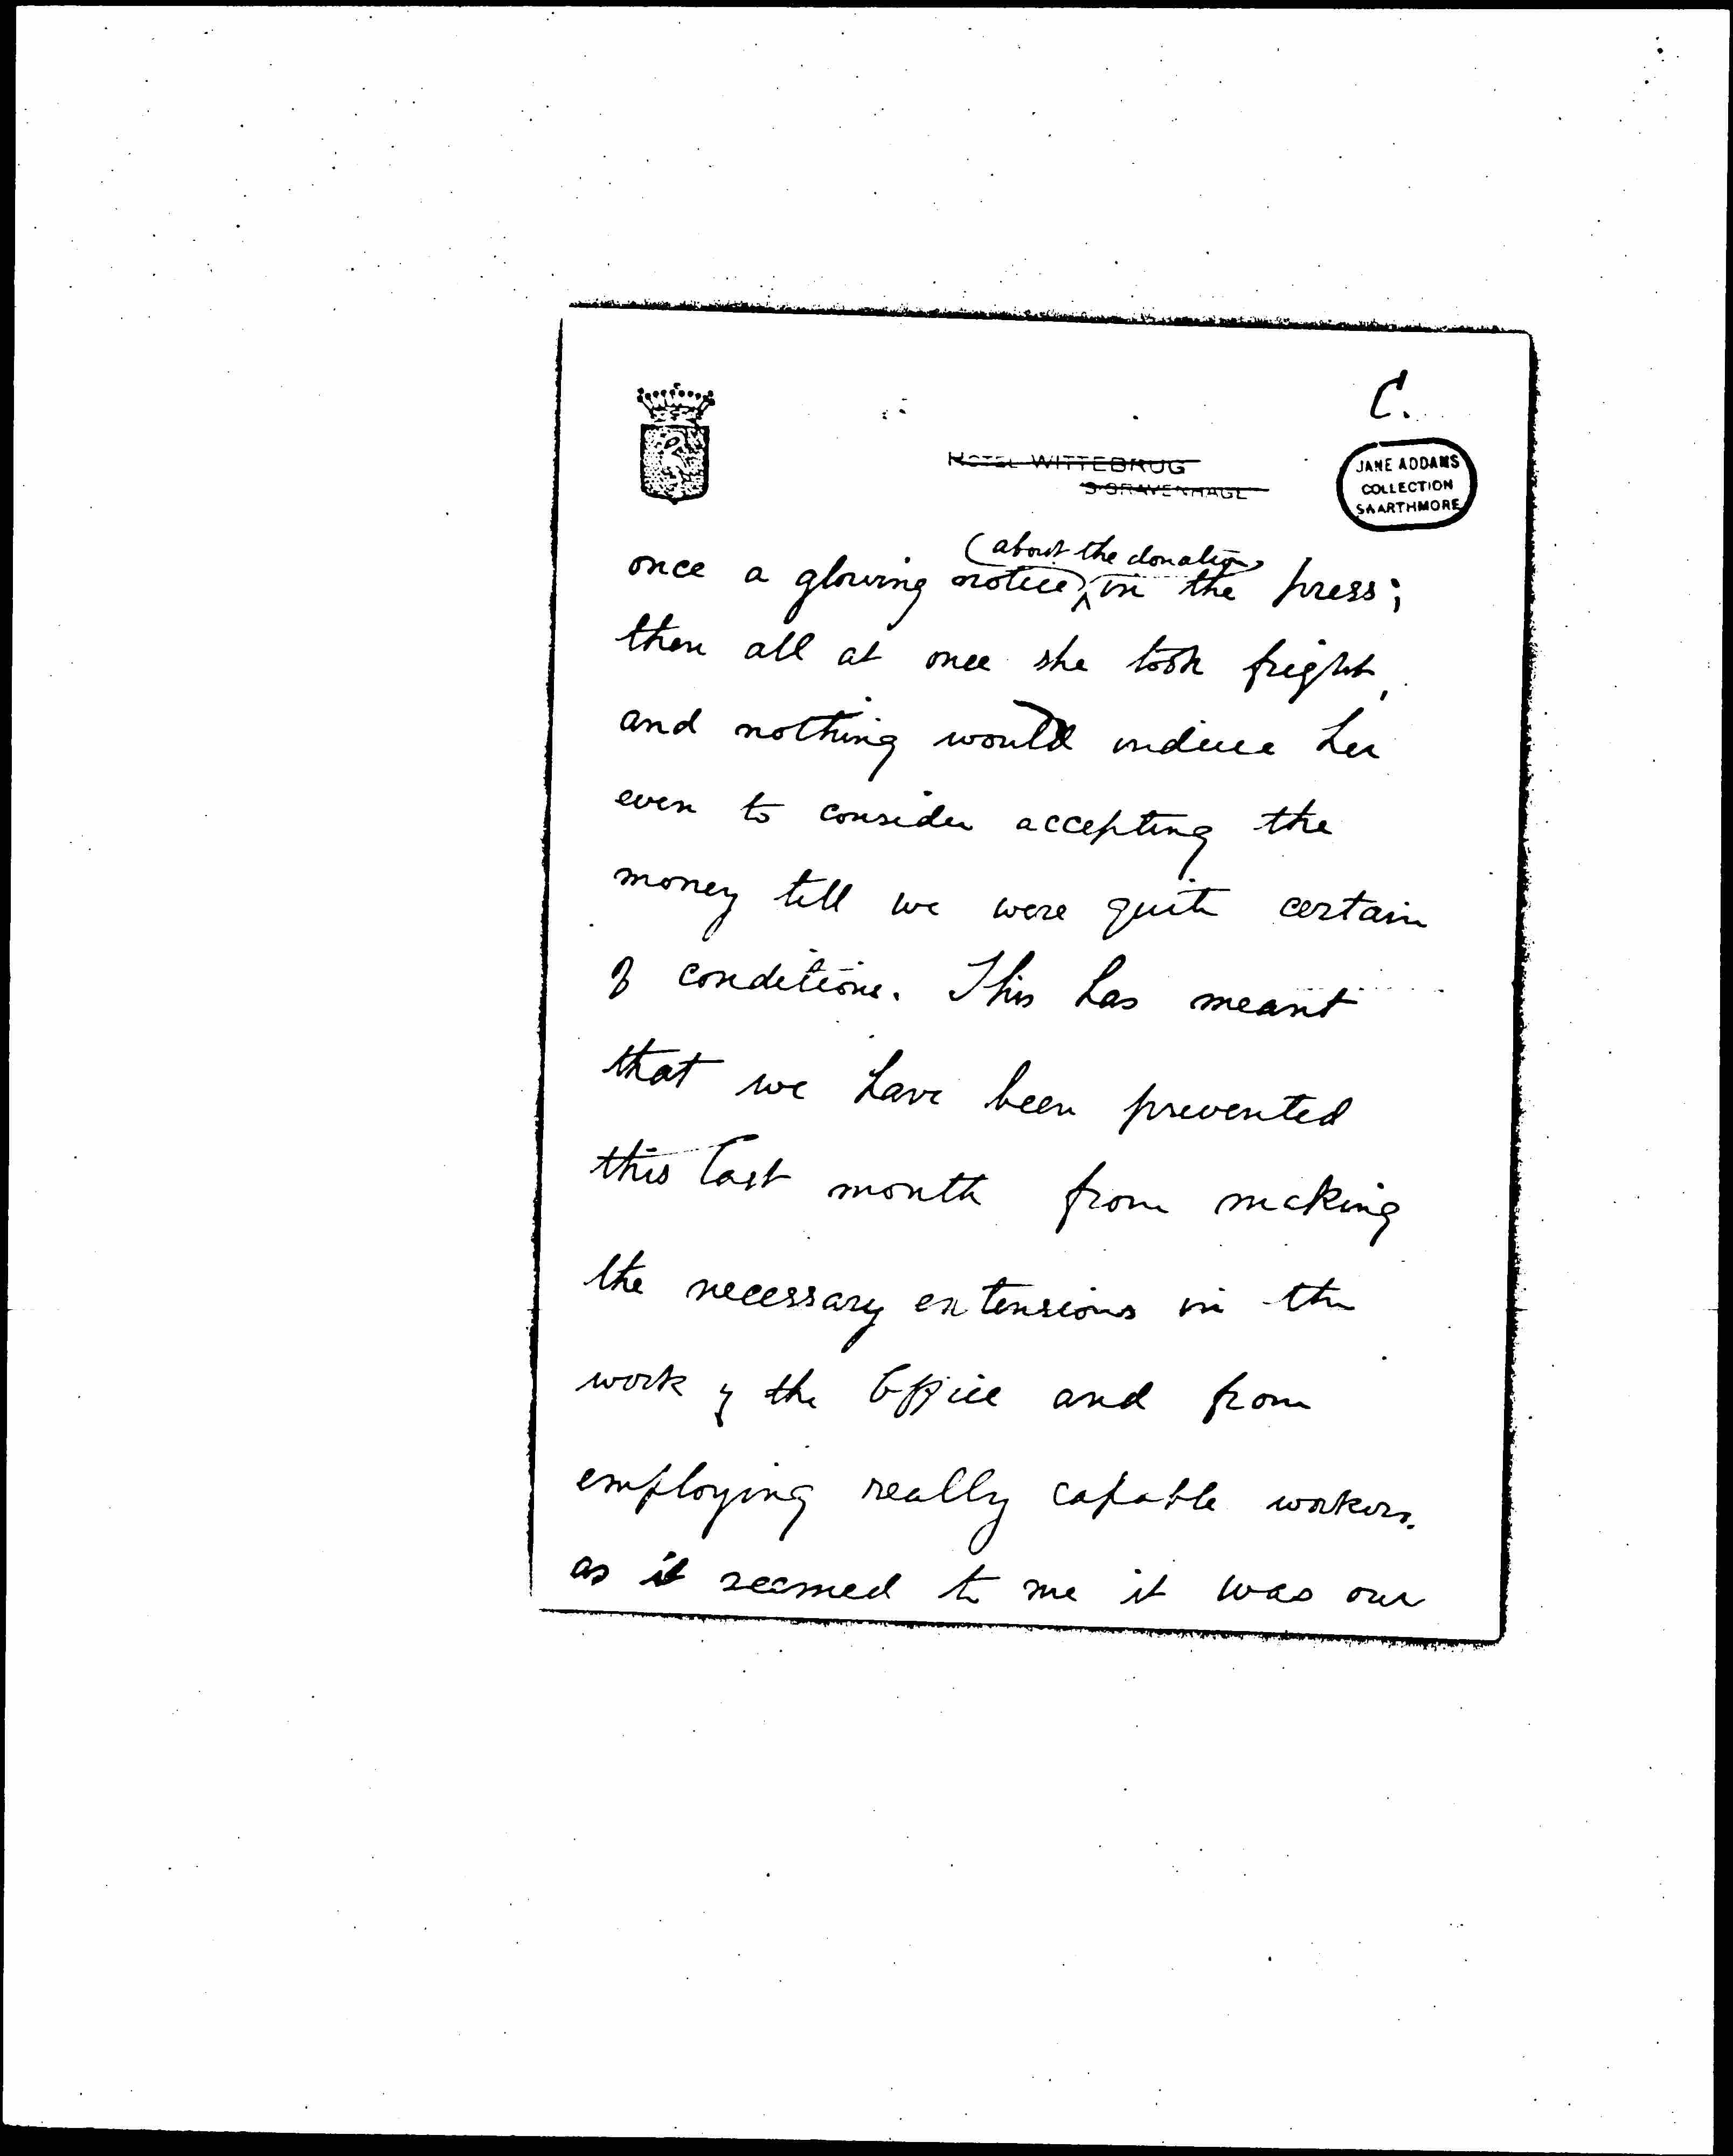 C.
HOTEL WITTEBRUG
S'GRAVENHAGE
JANE ADDAMS
COLLECTION
SWARTHMORE
(about the donation)
once a glowing notice in the press;
then all at once she took fright,
and nothing would induce her
even to consider accepting the
money till we were quite certain
of conditions. This has meant
that we have been prevented
this last month from making
the necessary extensions in the
work of the Office and from
employing really capable workers.
as it seemed to me it was our